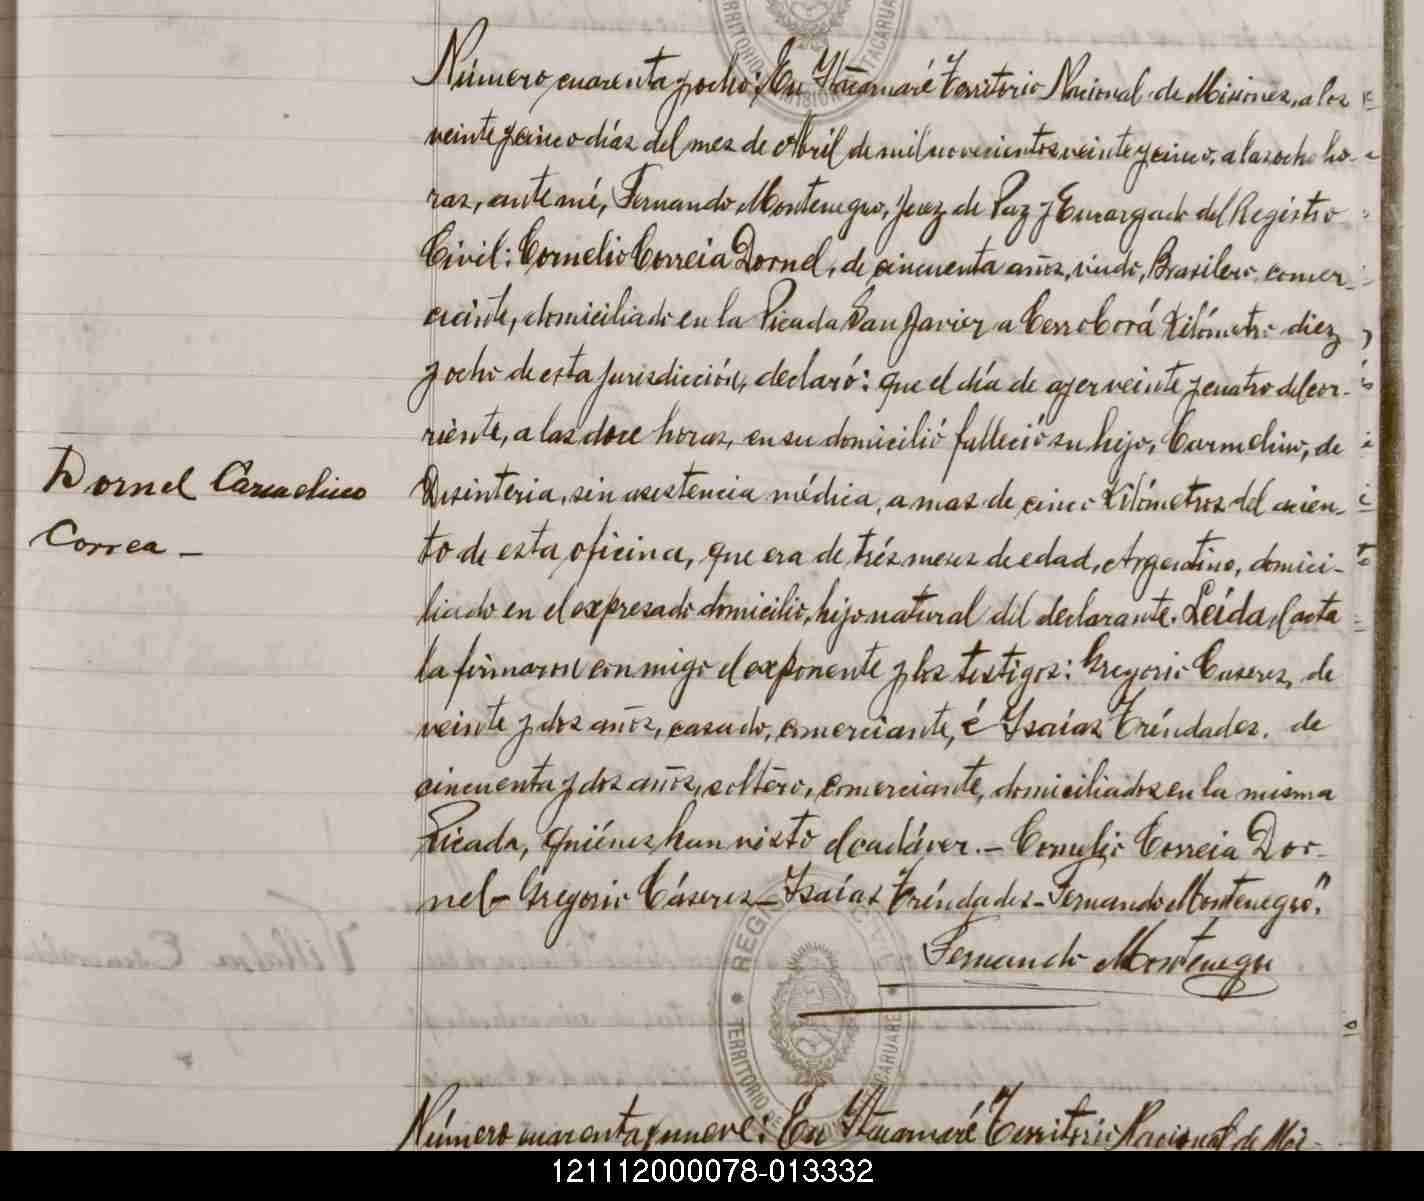 Número cuarenta y ocho: En Itacaruaré Territorio Nacional de Misiones, a los
veinte y cinco días del mes de Abril de mil novecientos veinte y cinco, a las ocho ho-
ras, ante mí, Fernando Montenegro, Juez de Paz y Encargado del Registro
Civil: Cornelio Correia Dornel, de cincuenta años, viudo, Brasilero, comer-
ciante, domiciliado en la Picada San Javier a Cerro Corá Kilómetro diez
y ocho de esta jurisdicción, declaró: que el día de ayer veinte y cuatro del cor-
riente, a las doce horas, en su domicilió falleció su hijo, Carmelino, de
Disinteria, sin asistencia médica, a mas de cinco Kilómetros del asien-
Dornel Carmelino
Correa -
to de esta oficina, que era de trés meses de edad, Argentino, domici-
liado en el expresado domicilio, hijo natural del declarante. Leída el acta
la firmaron conmigo el exponente y los testigos: Gregorio Caseres, de
veinte y dos años, casado, comerciante, é Isaías Tríndades, de
cincuenta y dos años, soltero, comerciante, domiciliados en la misma
Picada, quiénes han visto el cadáver. - Cornelio Correia Dor-
nel - Gregorio Cáseres - Isaías Tréndades - Fernando Montenegro."
Fernando Montenegro
REGI
TERRITORIO DE
ACARUARE
Número cuarenta y nueve: En Itacaruaré Territorio Nacional de Mis-
121112000078-013332